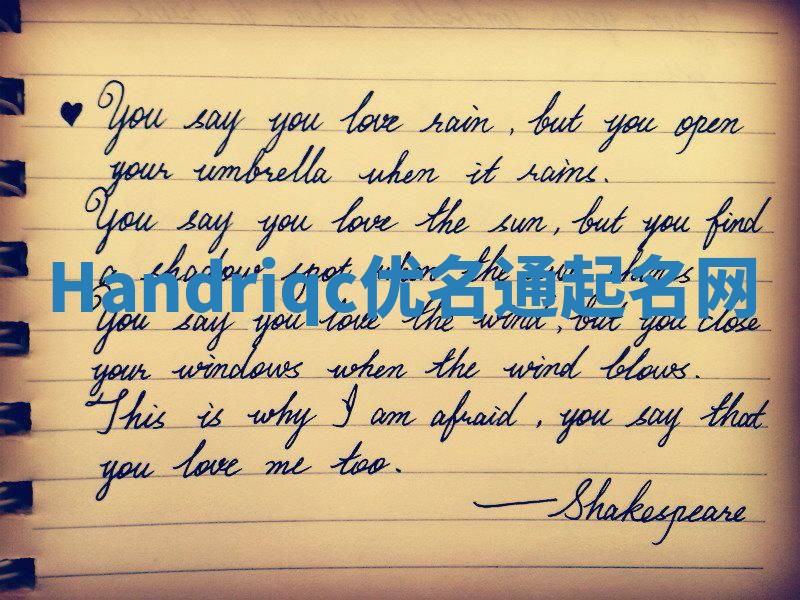 ♥ You say you love rain, but you open
your umbrella when it rains.
You say you love the sun, but you find
a shadow spot when the sun shines
Handriqc优名通起名网
You say you love the wind, but you close
your windows when the wind blows.
This is why I am afraid, you say that
you love me too.
—Shakespeare